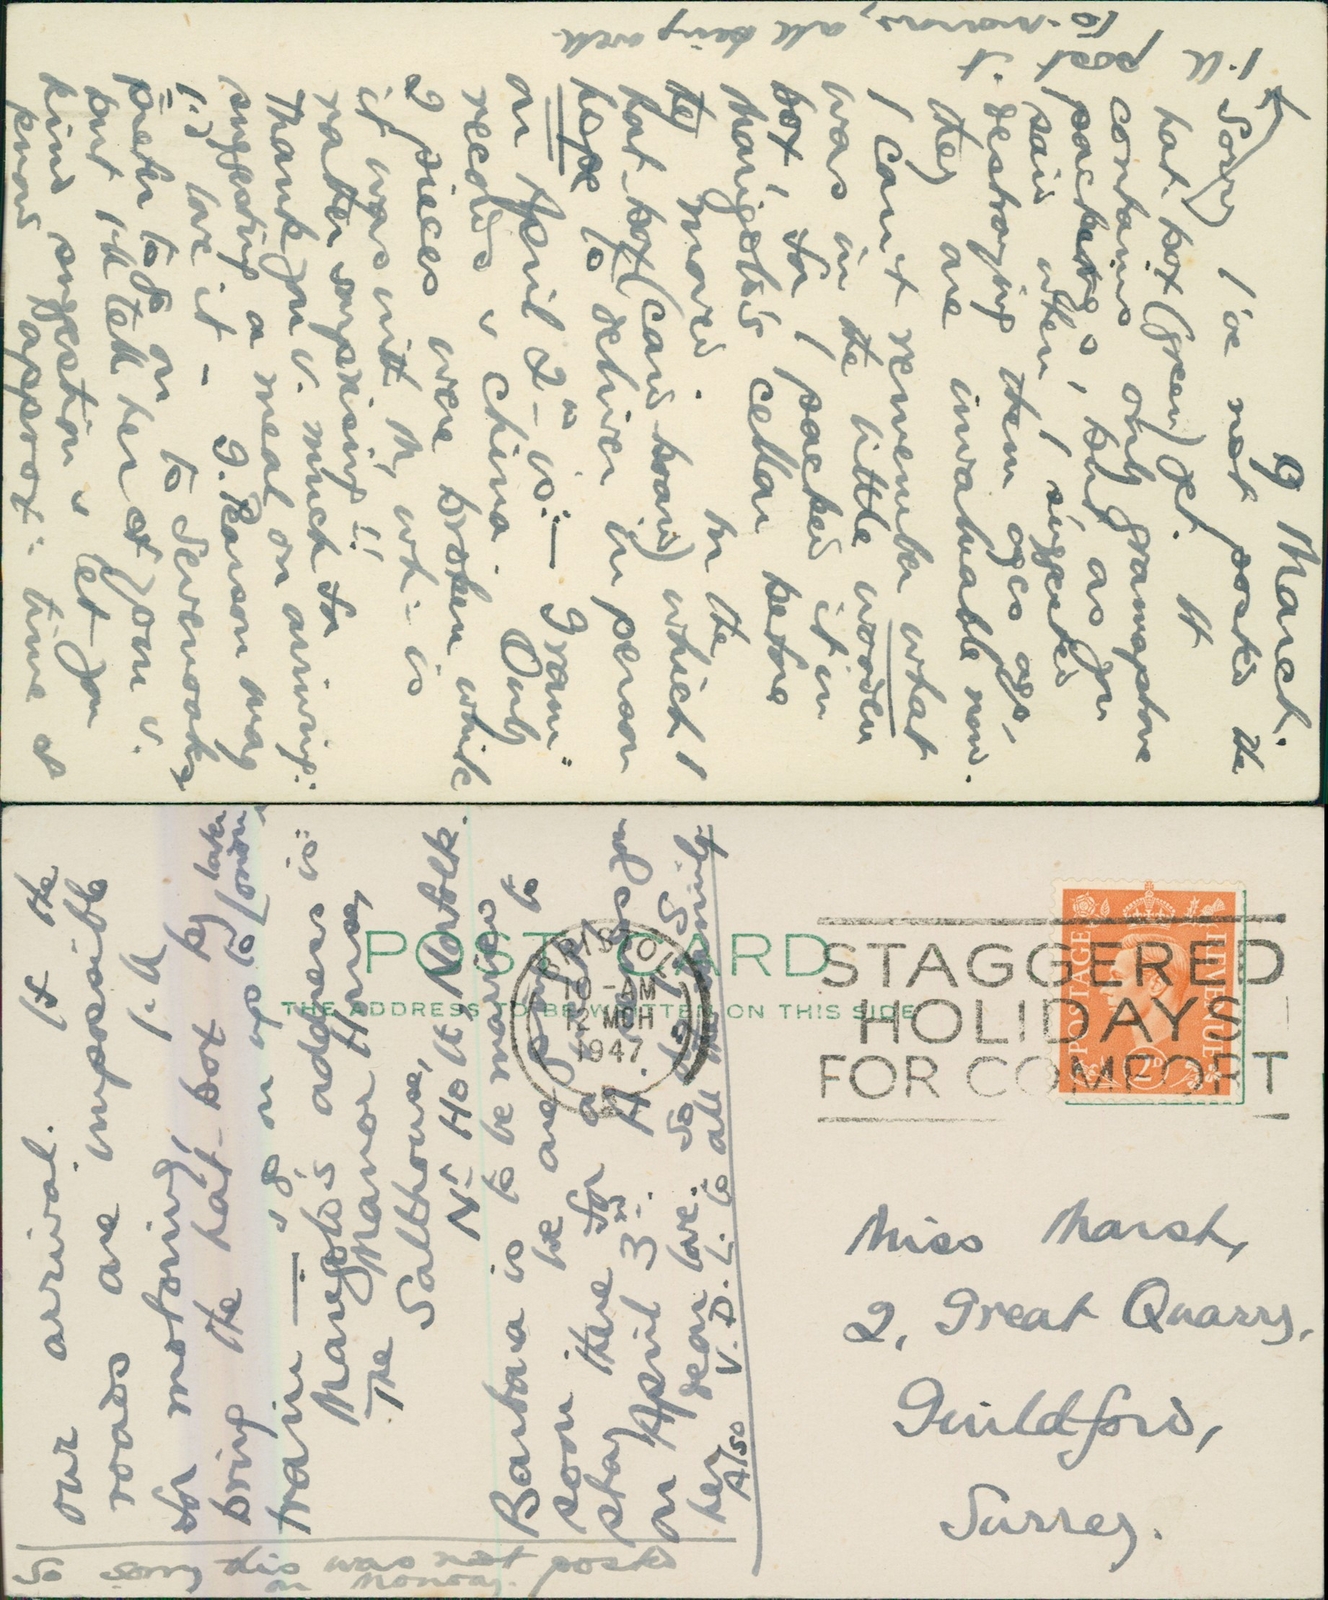 9 March.
Sorry I've not posted the
hat box (green) yet. It
contains only gramophone
packing, but as you
said when I suggested
destroying them ages ago,
they are invaluable now.
I can't remember what
was in the little wooden
box, for I packed it in
Marigold's cellar before
they moved. In the
hat-box (cardboard) which I
hope to deliver in person
on April 2nd is:— Gram:
records & china. Only
2 pieces were broken which
if was with M, wh: is
rather surprising!!
Thank you v. much for
suggesting a meal on arriving.
I'd love it - G. Ranson may
prefer to go on to Sevenoaks
but I'll tell her of your v.
kind suggestion & let you
know approx: time of
I'll post it
to-morrow, all being well.
our arrival. If the
roads are impossible
for motoring, I'll
bring the hat-box by later
train — & go on up to London.
Marigold's address is:
The Manor House,
Salthouse,
Nr Holt, Norfolk.
Barbara is to be married
soon there for a
on April 3rd.
her dear love. So
Also V. D. L. to all the family
So sorry this was not posted
on Monday.
POST CARD
THE ADDRESS TO BE WRITTEN ON THIS SIDE
BRISTOL
10-AM
12 MCH
1947
STAGGERED
HOLIDAYS
FOR COMFORT
POSTAGE
REVENUE
2D
Miss Marsh,
2, Great Quarry,
Guildford,
Surrey.